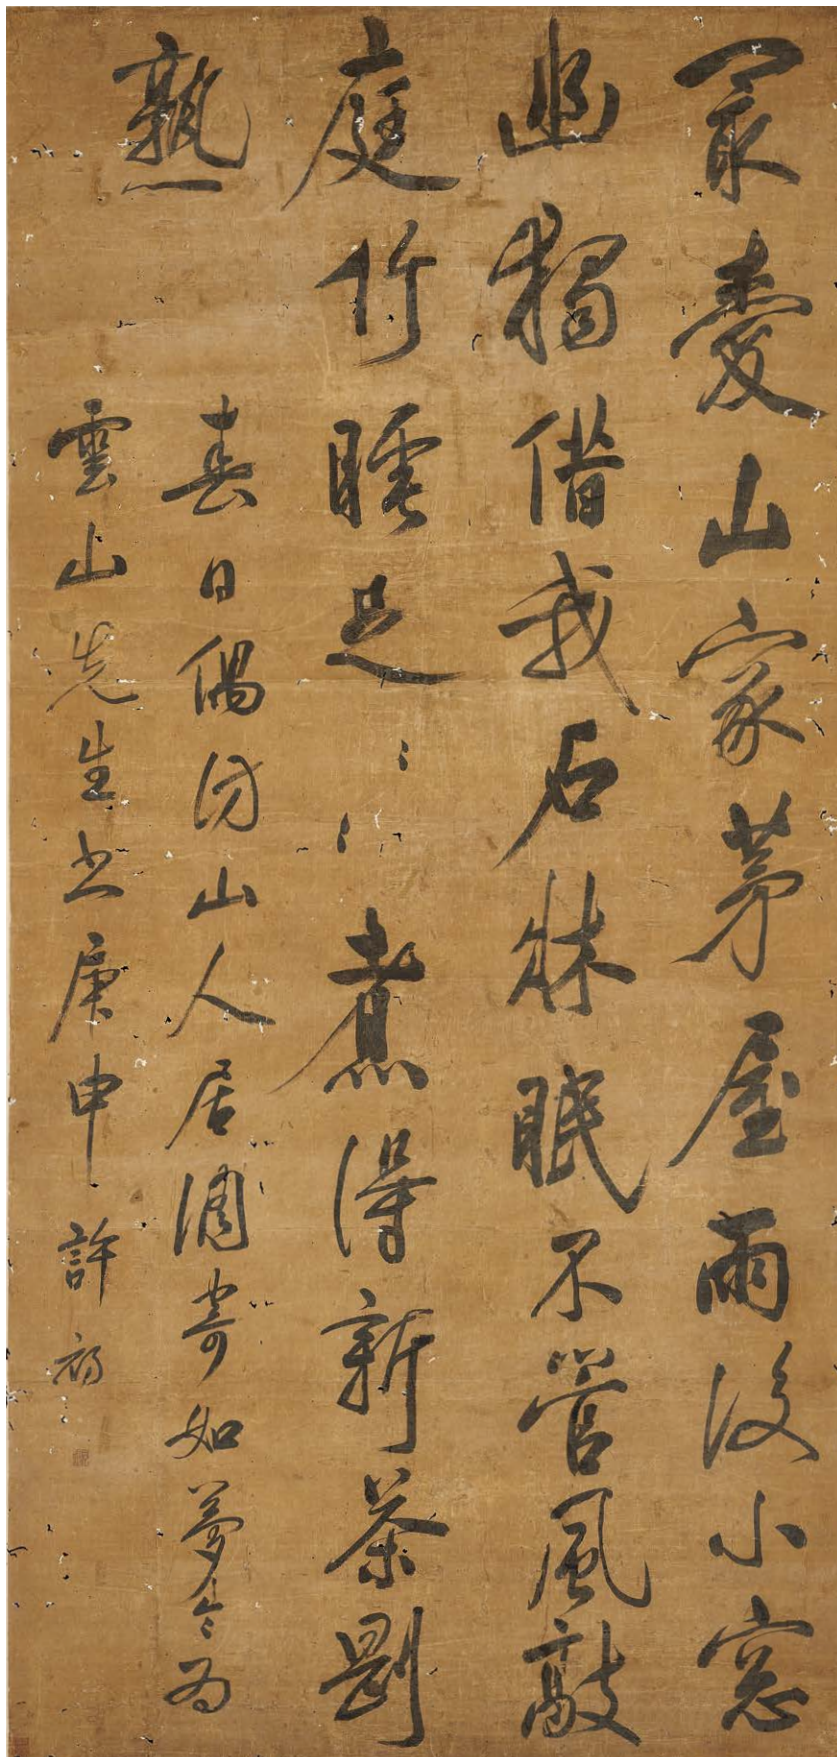 冣愛山家茅屋雨後小窓
幽獨借我石牀眠不管風敲
庭竹睡足〻〻煮得新茶剛
熟
春日偶訪山人居園寄如夢令〻為
雲山先生書庚申 許初